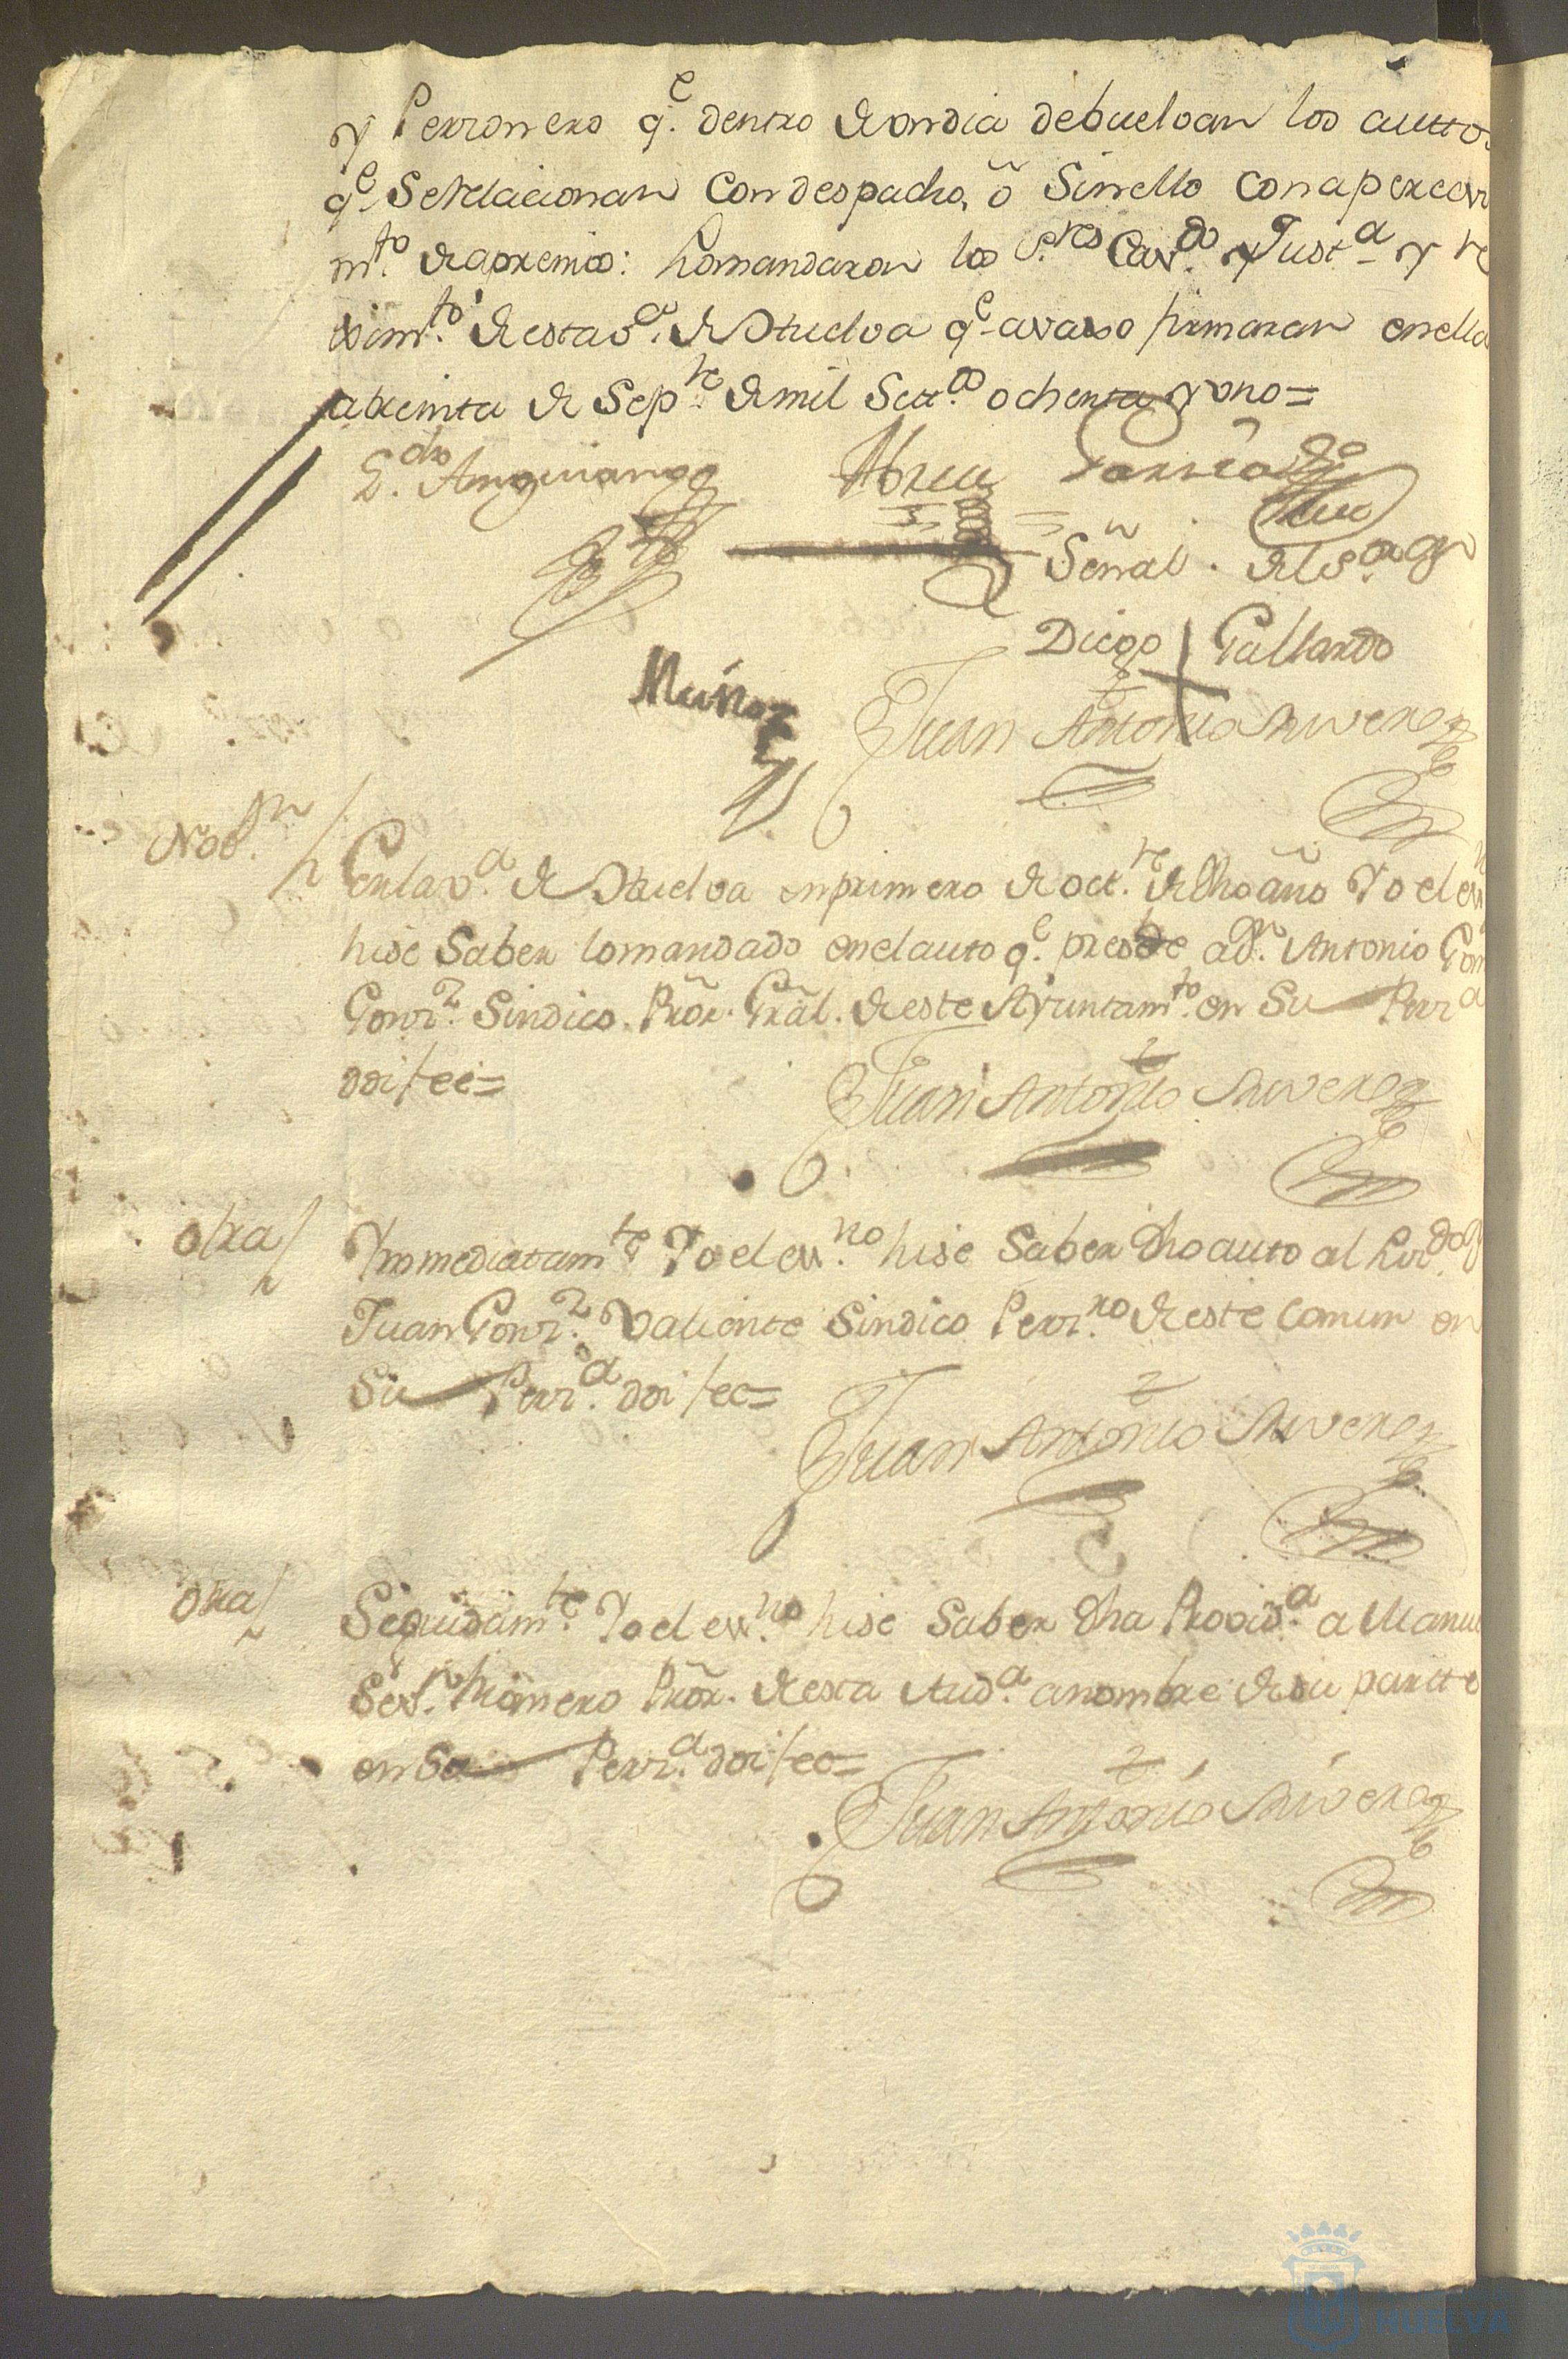 y Perzonero q.e dentro de ondia debuelvan los autto
q.e Serelacionan Condespacho, ó Sinello Conapercevi
m.to de apremio: lomandaron los S.res Cav.do y Just.a y re
xim.to de esta v.a de Huelva q.e avaxo firmaran enella
atreinta de Sep.re de mil Sett.os ochenta y ono=
L.do Anguiano Abreu Garcia
Señal. del S.or
Diego + Gallardo
Muñoz
Juan Antonio Suverez
Not.n
Enlav.a de Huelva enprimero de oct.re de dho año Yo el es
hise Saber lomandado enelauto q.e presede aD.n Antonio
Gonz.z Sindico Prõr. Grãl. de este Ayuntam.to en Su Perz.a
doi fee=
Juan Antonio Suverez
otra
Ynmediatam.te Yo el es.no hise Saber dho auto al Liz.do D
Juan Gonz.z Valiente Sindico Perz.ro de este Comun en
Su Perz.a doi fee=
Juan Antonio Suverez
otra
Seguidam.te Yo el es.no hise Saber dha Provid.a a Manu
Romero Prõr. de esta Aud.a anombre de su partte
en Su Perz.a doi fee=
Juan Antonio Suverez
HUELVA